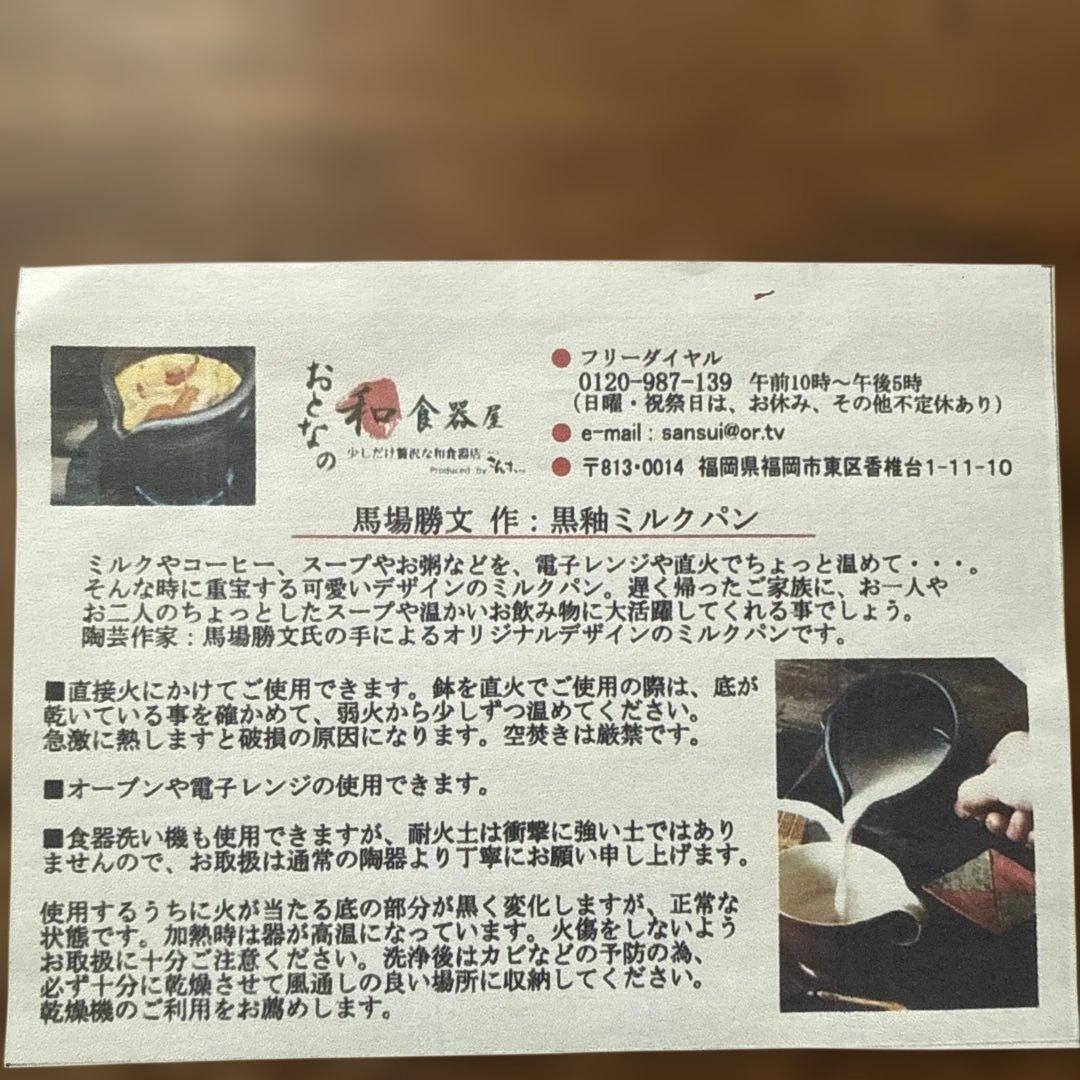 おとなの
和食器屋
少しだけ贅沢な和食器店
Produced by
● フリーダイヤル
0120-987-139 午前10時～午後5時
（日曜・祝祭日は、お休み、その他不定休あり）
● e-mail：sansui@or.tv
● 〒813・0014 福岡県福岡市東区香椎台1-11-10
馬場勝文 作：黒釉ミルクパン
ミルクやコーヒー、スープやお粥などを、電子レンジや直火でちょっと温めて・・・。
そんな時に重宝する可愛いデザインのミルクパン。遅く帰ったご家族に、お一人や
お二人のちょっとしたスープや温かいお飲み物に大活躍してくれる事でしょう。
陶芸作家：馬場勝文氏の手によるオリジナルデザインのミルクパンです。
■直接火にかけてご使用できます。鉢を直火でご使用の際は、底が
乾いている事を確かめて、弱火から少しずつ温めてください。
急激に熱しますと破損の原因になります。空焚きは厳禁です。
■オーブンや電子レンジの使用できます。
■食器洗い機も使用できますが、耐火土は衝撃に強い土ではあり
ませんので、お取扱は通常の陶器より丁寧にお願い申し上げます。
使用するうちに火が当たる底の部分が黒く変化しますが、正常な
状態です。加熱時は器が高温になっています。火傷をしないよう
お取扱に十分ご注意ください。洗浄後はカビなどの予防の為、
必ず十分に乾燥させて風通しの良い場所に収納してください。
乾燥機のご利用をお薦めします。